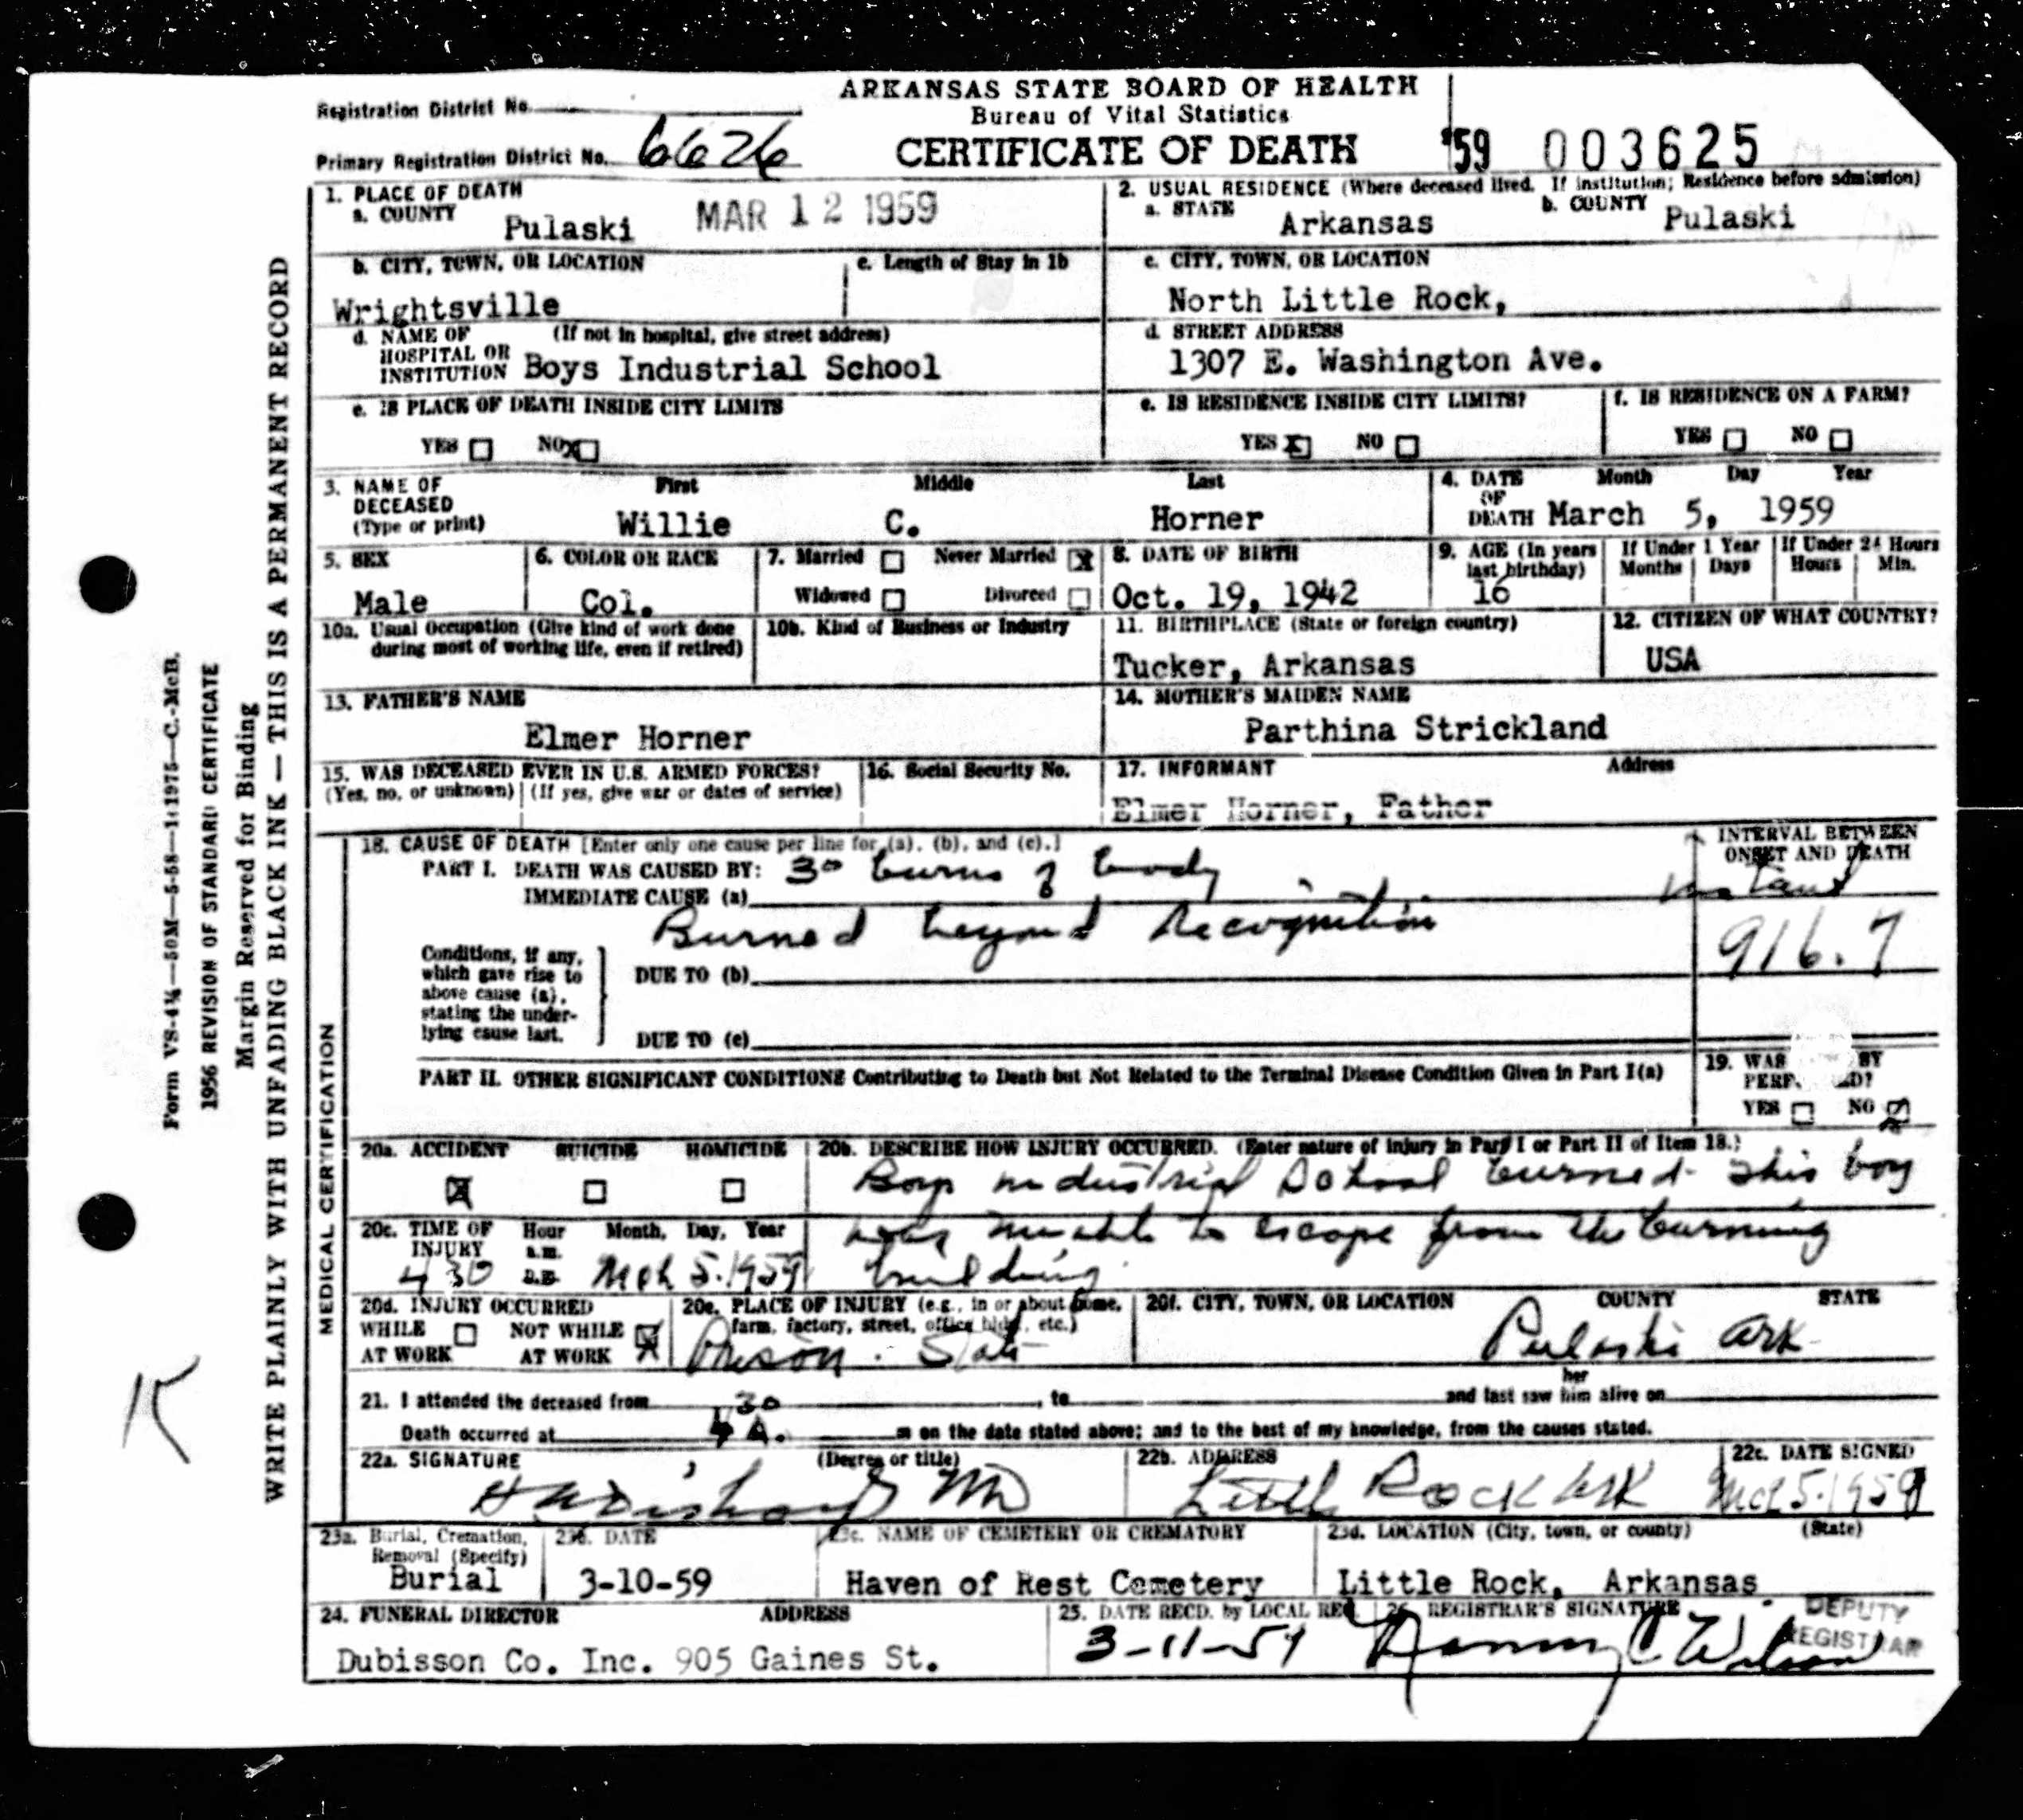 ARKANSAS STATE BOARD OF HEALTH
Bureau of Vital Statistics
CERTIFICATE OF DEATH
'59 003625
Registration District No.
Primary Registration District No. 6626
1. PLACE OF DEATH
a. COUNTY
Pulaski MAR 12 1959
2. USUAL RESIDENCE (Where deceased lived. If institution; Residence before admission)
a. STATE Arkansas b. COUNTY Pulaski
b. CITY, TOWN, OR LOCATION
Wrightsville
c. Length of Stay in 1b
c. CITY, TOWN, OR LOCATION
North Little Rock,
d. NAME OF (If not in hospital, give street address)
HOSPITAL OR
INSTITUTION Boys Industrial School
d. STREET ADDRESS
1307 E. Washington Ave.
e. IS PLACE OF DEATH INSIDE CITY LIMITS
YES NO X
e. IS RESIDENCE INSIDE CITY LIMITS?
YES X NO
f. IS RESIDENCE ON A FARM?
YES NO
3. NAME OF
DECEASED
(Type or print)
First Middle Last
Willie C. Horner
4. DATE Month Day Year
OF
DEATH March 5, 1959
5. SEX
Male
6. COLOR OR RACE
Col.
7. Married Never Married X
Widowed Divorced
8. DATE OF BIRTH
Oct. 19, 1942
9. AGE (In years
last birthday)
16
If Under 1 Year
Months Days
If Under 24 Hours
Hours Min.
10a. Usual Occupation (Give kind of work done
during most of working life, even if retired)
10b. Kind of Business or Industry
11. BIRTHPLACE (State or foreign country)
Tucker, Arkansas
12. CITIZEN OF WHAT COUNTRY?
USA
13. FATHER'S NAME
Elmer Horner
14. MOTHER'S MAIDEN NAME
Parthina Strickland
15. WAS DECEASED EVER IN U.S. ARMED FORCES?
(Yes, no, or unknown) (If yes, give war or dates of service)
16. Social Security No.
17. INFORMANT Address
Elmer Horner, Father
MEDICAL CERTIFICATION
18. CAUSE OF DEATH [Enter only one cause per line for (a), (b), and (c).]
PART I. DEATH WAS CAUSED BY: 3° burns of body
IMMEDIATE CAUSE (a)
Burned beyond recognition
INTERVAL BETWEEN
ONSET AND DEATH
instant
916.7
Conditions, if any,
which gave rise to
above cause (a),
stating the under-
lying cause last.
DUE TO (b)
DUE TO (c)
PART II. OTHER SIGNIFICANT CONDITIONS Contributing to Death but Not Related to the Terminal Disease Condition Given in Part I(a)
19. WAS BY
PERF
YES NO X
20a. ACCIDENT SUICIDE HOMICIDE
X
20b. DESCRIBE HOW INJURY OCCURRED. (Enter nature of injury in Part I or Part II of Item 18.)
Boys industrial School burned this boy
was unable to escape from the burning
building.
20c. TIME OF Hour Month, Day, Year
INJURY a.m.
430 p.m. Mch 5. 1959
20d. INJURY OCCURRED
WHILE NOT WHILE X
AT WORK AT WORK
20e. PLACE OF INJURY (e.g., in or about home,
farm, factory, street, office bldg., etc.)
Prison. State
20f. CITY, TOWN, OR LOCATION COUNTY STATE
Pulaski Ark
21. I attended the deceased from , to and last saw her him alive on
Death occurred at 4 30 A. m on the date stated above; and to the best of my knowledge, from the causes stated.
22a. SIGNATURE (Degree or title)
MD
22b. ADDRESS
Little Rock Ark
22c. DATE SIGNED
Mch 5. 1959
23a. Burial, Cremation,
Removal (Specify)
Burial
23b. DATE
3-10-59
23c. NAME OF CEMETERY OR CREMATORY
Haven of Rest Cemetery
23d. LOCATION (City, town, or county) (State)
Little Rock, Arkansas
24. FUNERAL DIRECTOR ADDRESS
Dubisson Co. Inc. 905 Gaines St.
25. DATE RECD. by LOCAL REG
3-11-59
26. REGISTRAR'S SIGNATURE
C. Wilson
DEPUTY
REGISTRAR
Form VS-4¼—50M—5-58—1:1975—C.-McB.
1956 REVISION OF STANDARD CERTIFICATE
Margin Reserved for Binding
WRITE PLAINLY WITH UNFADING BLACK INK — THIS IS A PERMANENT RECORD
K